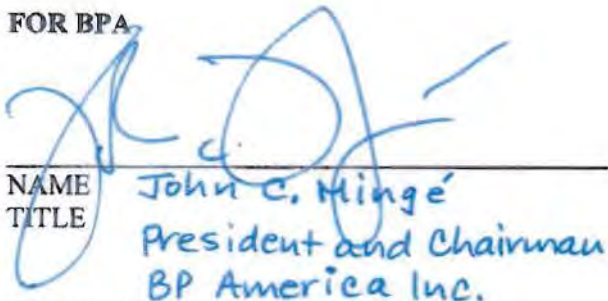 FOR BPA
NAME John C. Mingé
TITLE
President and Chairman
BP America Inc.